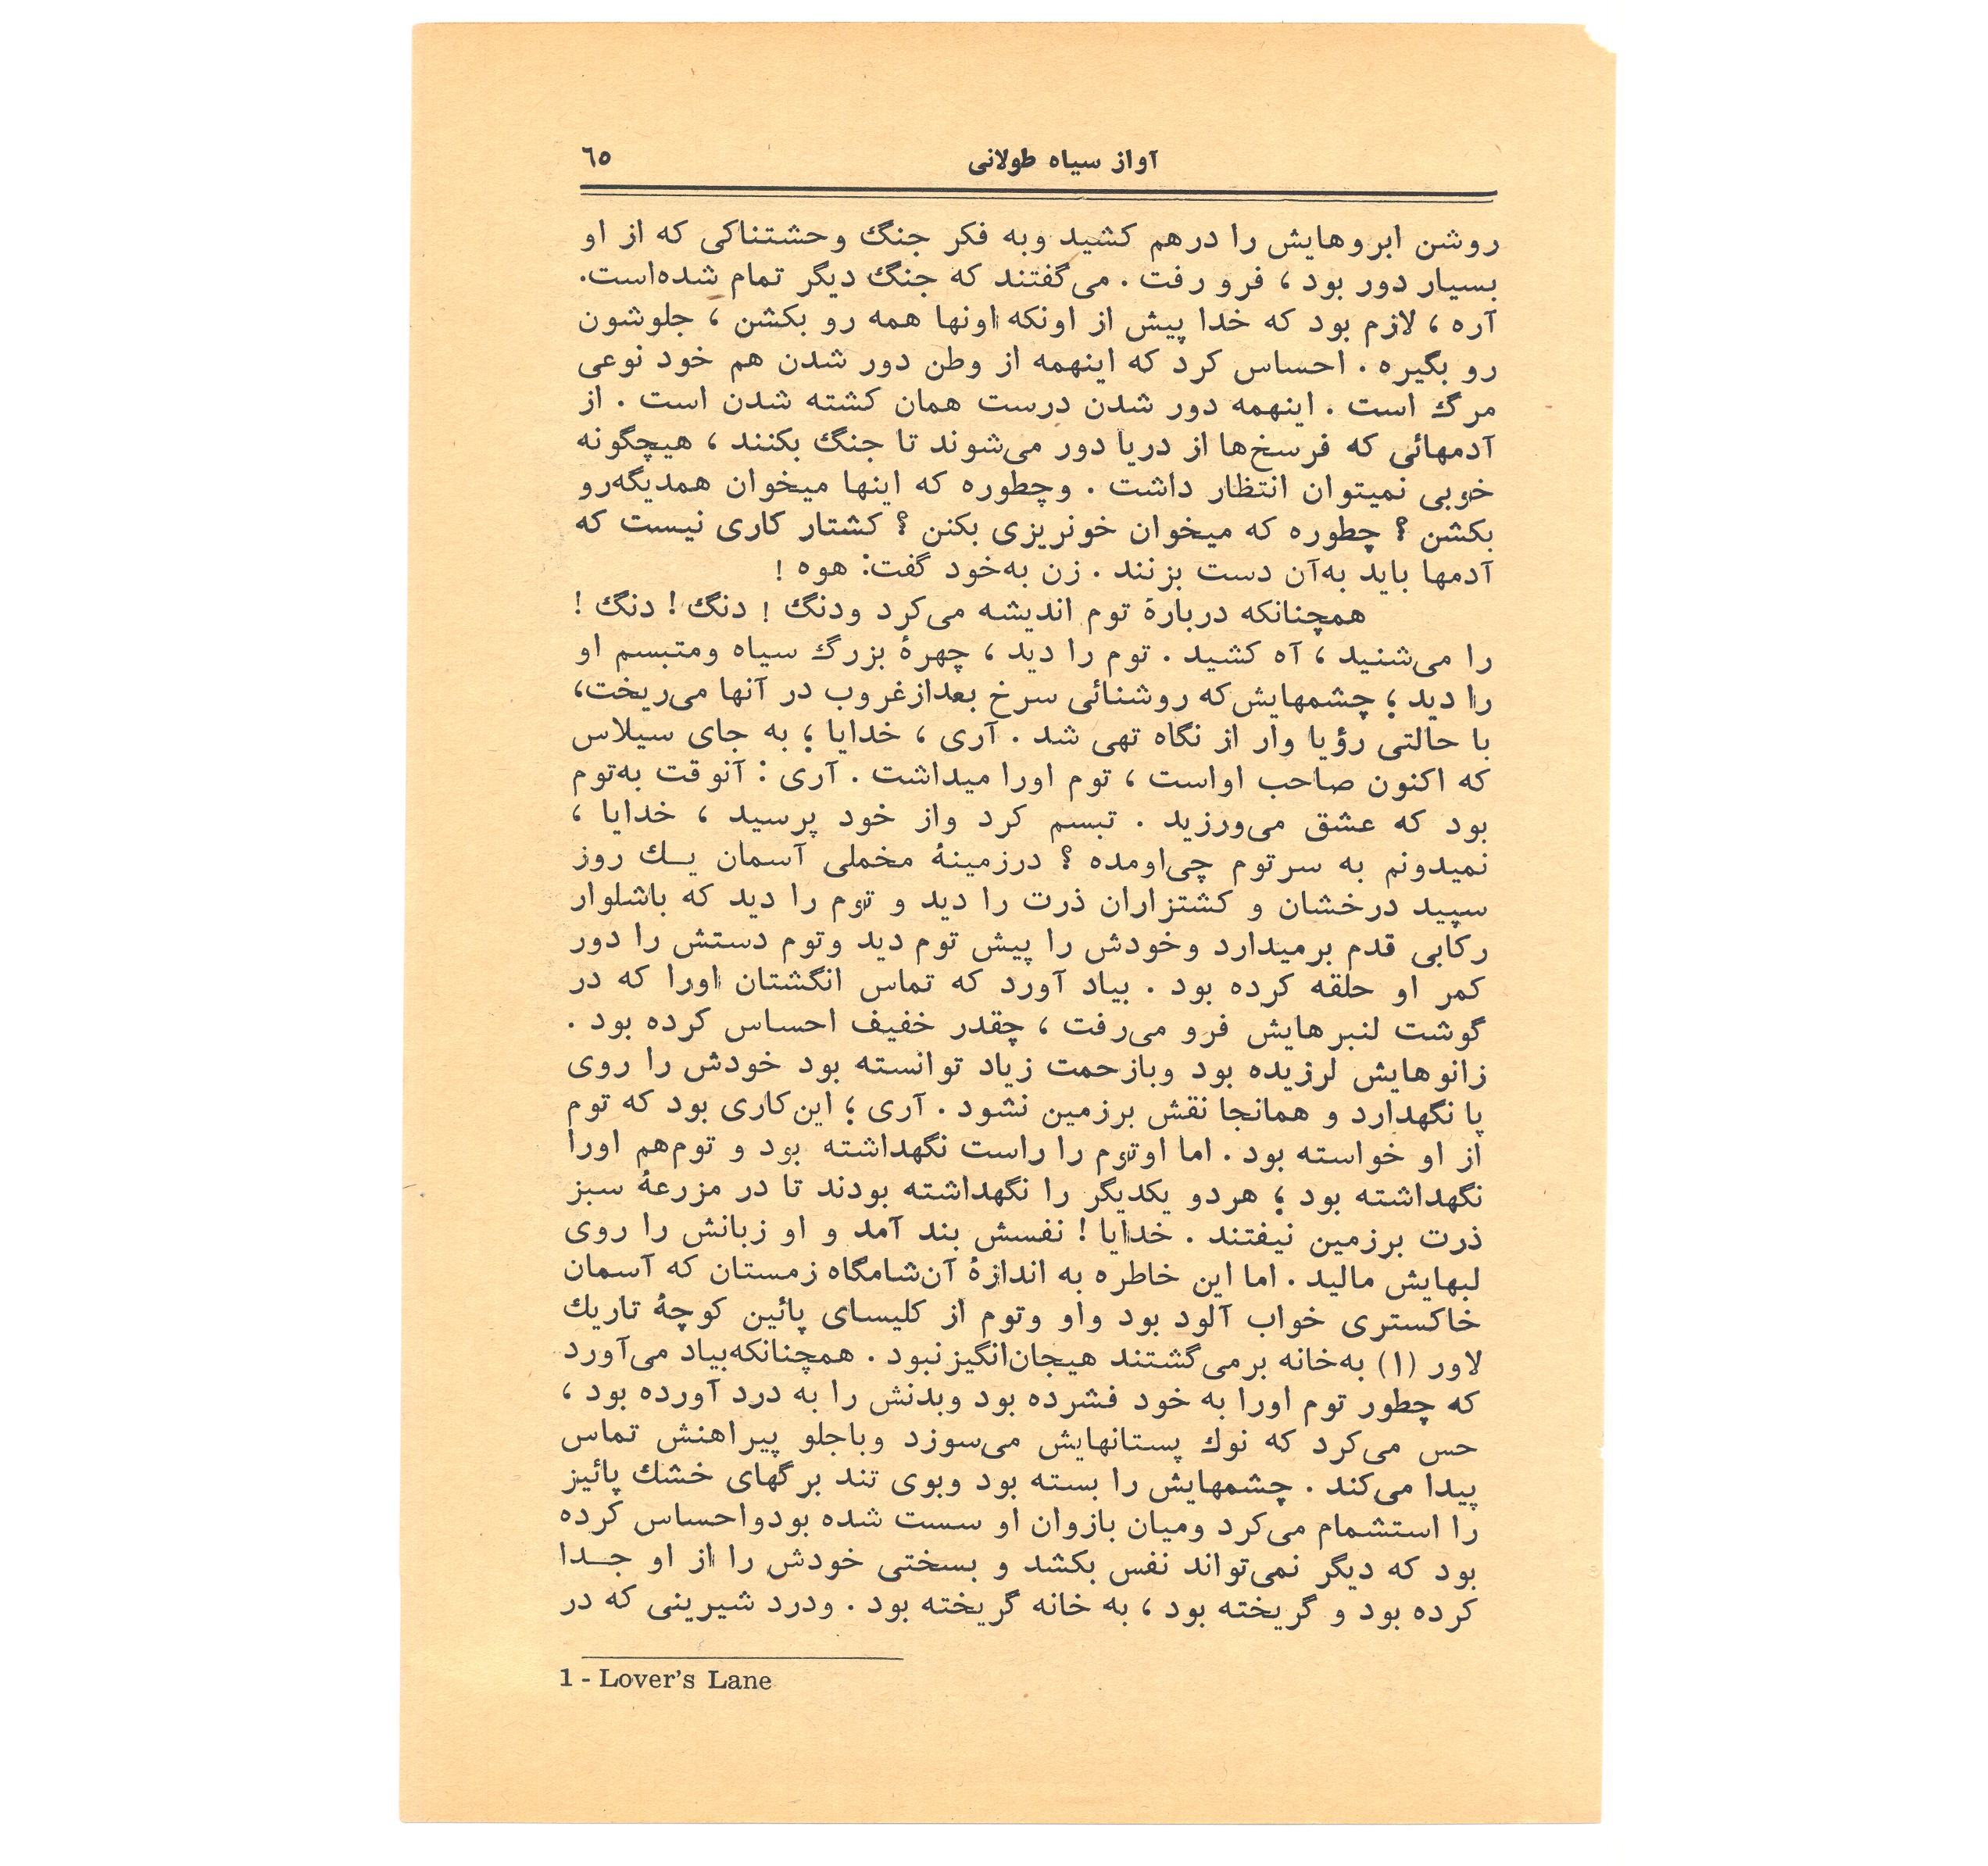 آواز سیاه طولانی ٦٥
روشن ابروهایش را درهم کشید وبه فکر جنگ وحشتناکی که از او
بسیار دور بود ، فرو رفت . می‌گفتند که جنگ دیگر تمام شده‌است.
آره ، لازم بود که خدا پیش از اونکه اونها همه رو بکشن ، جلوشون
رو بگیره . احساس کرد که اینهمه از وطن دور شدن هم خود نوعی
مرگ است . اینهمه دور شدن درست همان کشته شدن است . از
آدمهائی که فرسخ‌ها از دریا دور می‌شوند تا جنگ بکنند ، هیچگونه
خوبی نمیتوان انتظار داشت . وچطوره که اینها میخوان همدیگه‌رو
بکشن ؟ چطوره که میخوان خونریزی بکنن ؟ کشتار کاری نیست که
آدمها باید به‌آن دست بزنند . زن به‌خود گفت: هوه !
همچنانکه دربارهٔ توم اندیشه می‌کرد ودنگ ! دنگ ! دنگ !
را می‌شنید ، آه کشید . توم را دید ، چهرهٔ بزرگ سیاه ومتبسم او
را دید ؛ چشمهایش‌که روشنائی سرخ بعدازغروب در آنها می‌ریخت،
با حالتی رؤیا وار از نگاه تهی شد . آری ، خدایا ؛ به جای سیلاس
که اکنون صاحب اواست ، توم اورا میداشت . آری : آنوقت به‌توم
بود که عشق می‌ورزید . تبسم کرد واز خود پرسید ، خدایا ،
نمیدونم به سرتوم چی‌اومده ؟ درزمینهٔ مخملی آسمان یـك روز
سپید درخشان و کشتزاران ذرت را دید و توم را دید که باشلوار
رکابی قدم برمیدارد وخودش را پیش توم دید وتوم دستش را دور
کمر او حلقه کرده بود . بیاد آورد که تماس انگشتان اورا که در
گوشت لنبرهایش فرو می‌رفت ، چقدر خفیف احساس کرده بود .
زانوهایش لرزیده بود وبازحمت زیاد توانسته بود خودش را روی
پا نگهدارد و همانجا نقش برزمین نشود . آری ؛ این‌کاری بود که توم
از او خواسته بود . اما اوتوم را راست نگهداشته بود و توم‌هم اورا
نگهداشته بود ؛ هردو یکدیگر را نگهداشته بودند تا در مزرعهٔ سبز
ذرت برزمین نیفتند . خدایا ! نفسش بند آمد و او زبانش را روی
لبهایش مالید . اما این خاطره به اندازهٔ آن‌شامگاه زمستان که آسمان
خاکستری خواب آلود بود واو وتوم از کلیسای پائین کوچهٔ تاریك
لاور (۱) به‌خانه برمی‌گشتند هیجان‌انگیز نبود . همچنانکه‌بیاد می‌آورد
که چطور توم اورا به خود فشرده بود وبدنش را به درد آورده بود ،
حس می‌کرد که نوك پستانهایش می‌سوزد وباجلو پیراهنش تماس
پیدا می‌کند . چشمهایش را بسته بود وبوی تند برگهای خشك پائیز
را استشمام می‌کرد ومیان بازوان او سست شده بودواحساس کرده
بود که دیگر نمی‌تواند نفس بکشد و بسختی خودش را از او جـدا
کرده بود و گریخته بود ، به خانه گریخته بود . ودرد شیرینی که در
1 - Lover's Lane